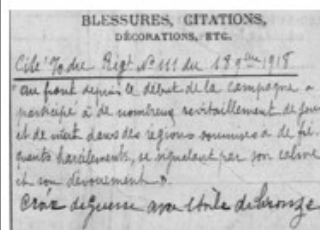 BLESSURES, CITATIONS,
DÉCORATIONS, ETC.
Cité à l'ordre Régt Nº 111 du 18 9bre 1918
"au front depuis le début de la campagne a
participé à de nombreux ravitaillements de jour
et de nuit dans des régions soumises à de fré
quents harcèlements, se signalant par son calme
et son dévouement".
Croix de Guerre avec Etoile de bronze